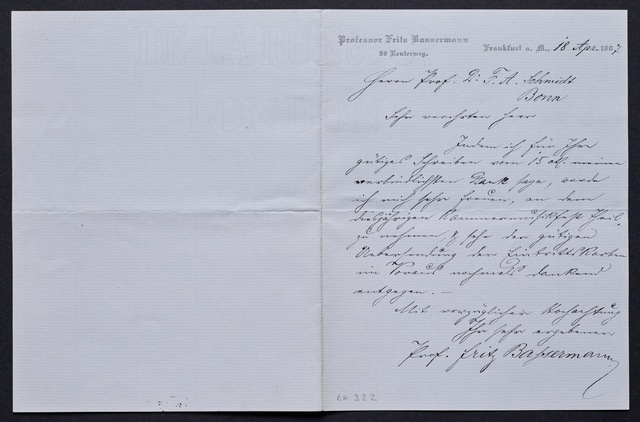 Professor Fritz Bassermann
Reuterweg.
Frankfurt a. M., 18. Apr. 1887
Herrn Prof. Dr. F. A. Schmidt
Bonn
Sehr verehrter Herr
Indem ich für Ihr
gütiges Schreiben vom 15. d. M. meinen
verbindlichsten Dank sage, werde
ich mich sehr freuen, an dem
diesjährigen Kammermusikfest Theil
zu nehmen, & sehe der gütigen
Uebersendung der Eintrittskarten
im Voraus nochmals dankend
entgegen. —
Mit vorzüglicher Hochachtung
Ihr sehr ergebener
Prof. Fritz Bassermann
322